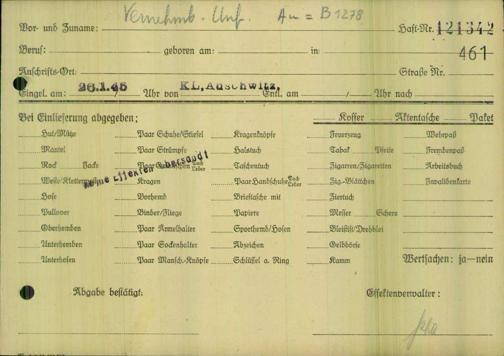 Vernehmb. Unf. Au = B 1278
Vor- und Zuname: Haft-Nr. 121342
461
Beruf: geboren am: in
Anschrifts-Ort: Straße Nr.
Eingel. am: 26.1.45 Uhr von KL. Auschwitz, Entl. am / Uhr nach
Bei Einlieferung abgegeben: Koffer Aktentasche Paket
Hut/Mütze Paar Schuhe/Stiefel Kragenknöpfe Feuerzeug Wehrpaß
Mantel Paar Strümpfe Halstuch Tabak Pfeife Fremdenpaß
Rock Jacke Paar Taschentuch Zigarren/Zigaretten Arbeitsbuch
Kragen Paar Handschuhe Stoff/Leder Zig.-Blättchen Invalidenkarte
Keine Effekten übersandt
Hose Vorhemd Brieftasche mit Ziertuch
Pullover Binder/Fliege Papiere Messer Schere
Oberhemden Paar Ärmelhalter Sporthemd/Hosen Bleistift/Drehblei
Unterhemden Paar Sockenhalter Abzeichen Geldbörse
Unterhosen Paar Mansch.-Knöpfe Schlüssel a. Ring Kamm Wertsachen: ja—nein
Abgabe bestätigt: Effektenverwalter: